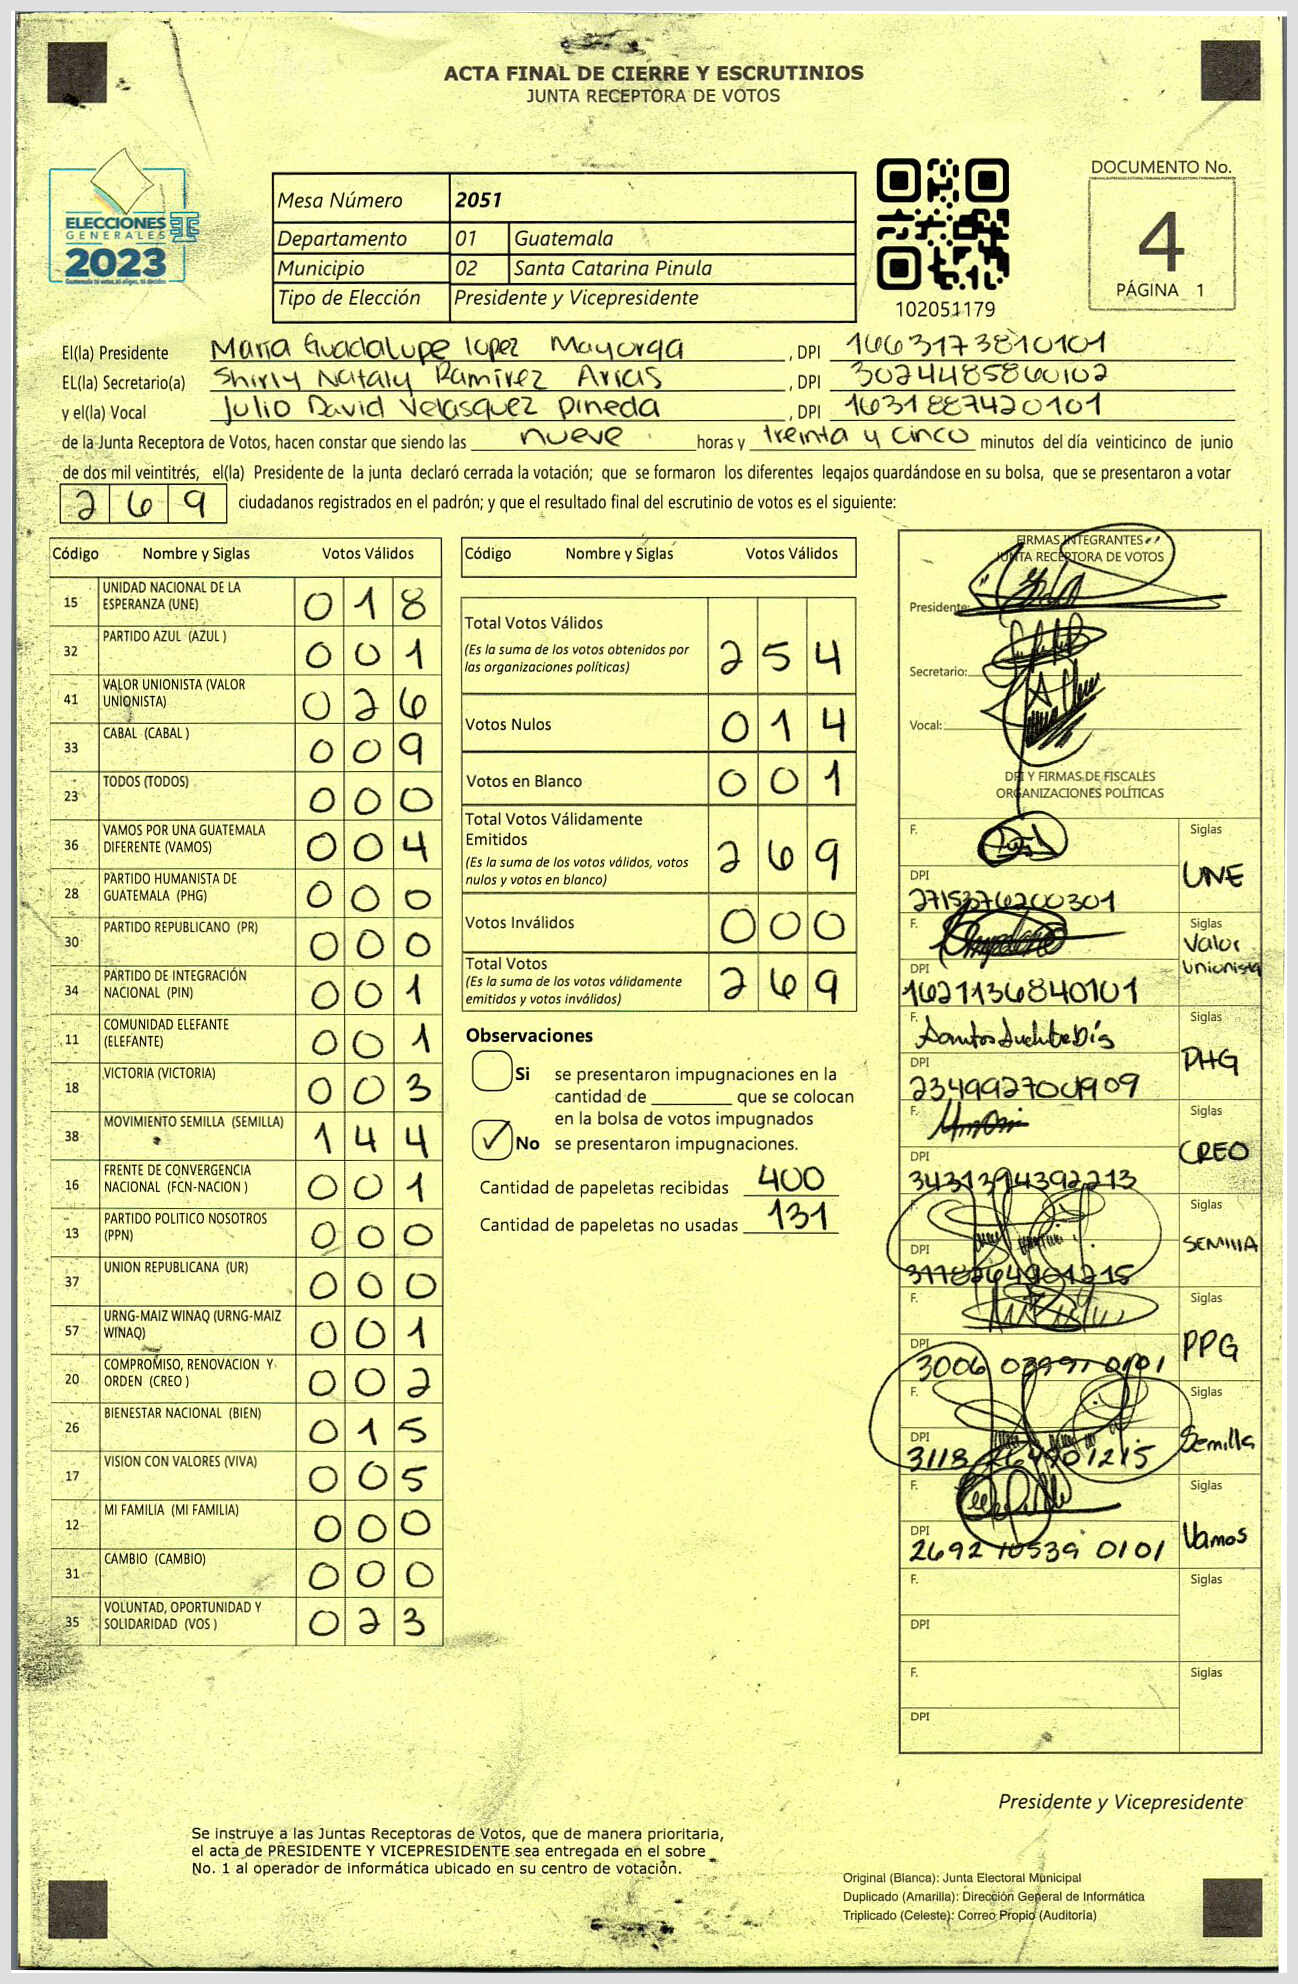 ACTA FINAL DE CIERRE Y ESCRUTINIOS
JUNTA RECEPTORA DE VOTOS
ELECCIONES
GENERALES
2023
Mesa Número 2051
Departamento 01 Guatemala
Municipio 02 Santa Catarina Pinula
Tipo de Elección Presidente y Vicepresidente
102051179
DOCUMENTO No.
4
PÁGINA 1
El(la) Presidente Maria Guadalupe lopez Mayorga , DPI 1663173810101
EL(la) Secretario(a) Shirly Nataly Ramirez Arias , DPI 3024485860102
y el(la) Vocal Julio David Velasquez Pineda , DPI 1631887420101
de la Junta Receptora de Votos, hacen constar que siendo las nueve horas y treinta y cinco minutos del día veinticinco de junio
de dos mil veintitrés, el(la) Presidente de la junta declaró cerrada la votación; que se formaron los diferentes legajos guardándose en su bolsa, que se presentaron a votar
269 ciudadanos registrados en el padrón; y que el resultado final del escrutinio de votos es el siguiente:
Código Nombre y Siglas Votos Válidos
15 UNIDAD NACIONAL DE LA ESPERANZA (UNE) 018
32 PARTIDO AZUL (AZUL ) 001
41 VALOR UNIONISTA (VALOR UNIONISTA) 026
33 CABAL (CABAL ) 009
23 TODOS (TODOS) 000
36 VAMOS POR UNA GUATEMALA DIFERENTE (VAMOS) 004
28 PARTIDO HUMANISTA DE GUATEMALA (PHG) 000
30 PARTIDO REPUBLICANO (PR) 000
34 PARTIDO DE INTEGRACIÓN NACIONAL (PIN) 001
11 COMUNIDAD ELEFANTE (ELEFANTE) 001
18 VICTORIA (VICTORIA) 003
38 MOVIMIENTO SEMILLA (SEMILLA) 144
16 FRENTE DE CONVERGENCIA NACIONAL (FCN-NACION ) 001
13 PARTIDO POLITICO NOSOTROS (PPN) 000
37 UNION REPUBLICANA (UR) 000
57 URNG-MAIZ WINAQ (URNG-MAIZ WINAQ) 001
20 COMPROMISO, RENOVACION Y ORDEN (CREO ) 002
26 BIENESTAR NACIONAL (BIEN) 015
17 VISION CON VALORES (VIVA) 005
12 MI FAMILIA (MI FAMILIA) 000
31 CAMBIO (CAMBIO) 000
35 VOLUNTAD, OPORTUNIDAD Y SOLIDARIDAD (VOS ) 023
Código Nombre y Siglas Votos Válidos
Total Votos Válidos 254
(Es la suma de los votos obtenidos por
las organizaciones políticas)
Votos Nulos 014
Votos en Blanco 001
Total Votos Válidamente
Emitidos 269
(Es la suma de los votos válidos, votos
nulos y votos en blanco)
Votos Inválidos 000
Total Votos 269
(Es la suma de los votos válidamente
emitidos y votos inválidos)
Observaciones
Si se presentaron impugnaciones en la
cantidad de ________ que se colocan
en la bolsa de votos impugnados
✓ No se presentaron impugnaciones.
Cantidad de papeletas recibidas 400
Cantidad de papeletas no usadas 131
FIRMAS INTEGRANTES
JUNTA RECEPTORA DE VOTOS
Presidente:
Secretario:
Vocal:
DPI Y FIRMAS DE FISCALES
ORGANIZACIONES POLÍTICAS
F. Siglas
UNE
DPI
F. Siglas
Valor
Unionista
DPI
1621136840101
F. Siglas
PHG
DPI
F. Siglas
CREO
DPI
F. Siglas
SEMIllA
DPI
F. Siglas
PPG
DPI
F. Siglas
Semilla
DPI
F. Siglas
Vamos
DPI
2692 10539 0101
F. Siglas
DPI
F. Siglas
DPI
Presidente y Vicepresidente
Se instruye a las Juntas Receptoras de Votos, que de manera prioritaria,
el acta de PRESIDENTE Y VICEPRESIDENTE sea entregada en el sobre
No. 1 al operador de informática ubicado en su centro de votación.
Original (Blanca): Junta Electoral Municipal
Duplicado (Amarilla): Dirección General de Informática
Triplicado (Celeste): Correo Propio (Auditoría)